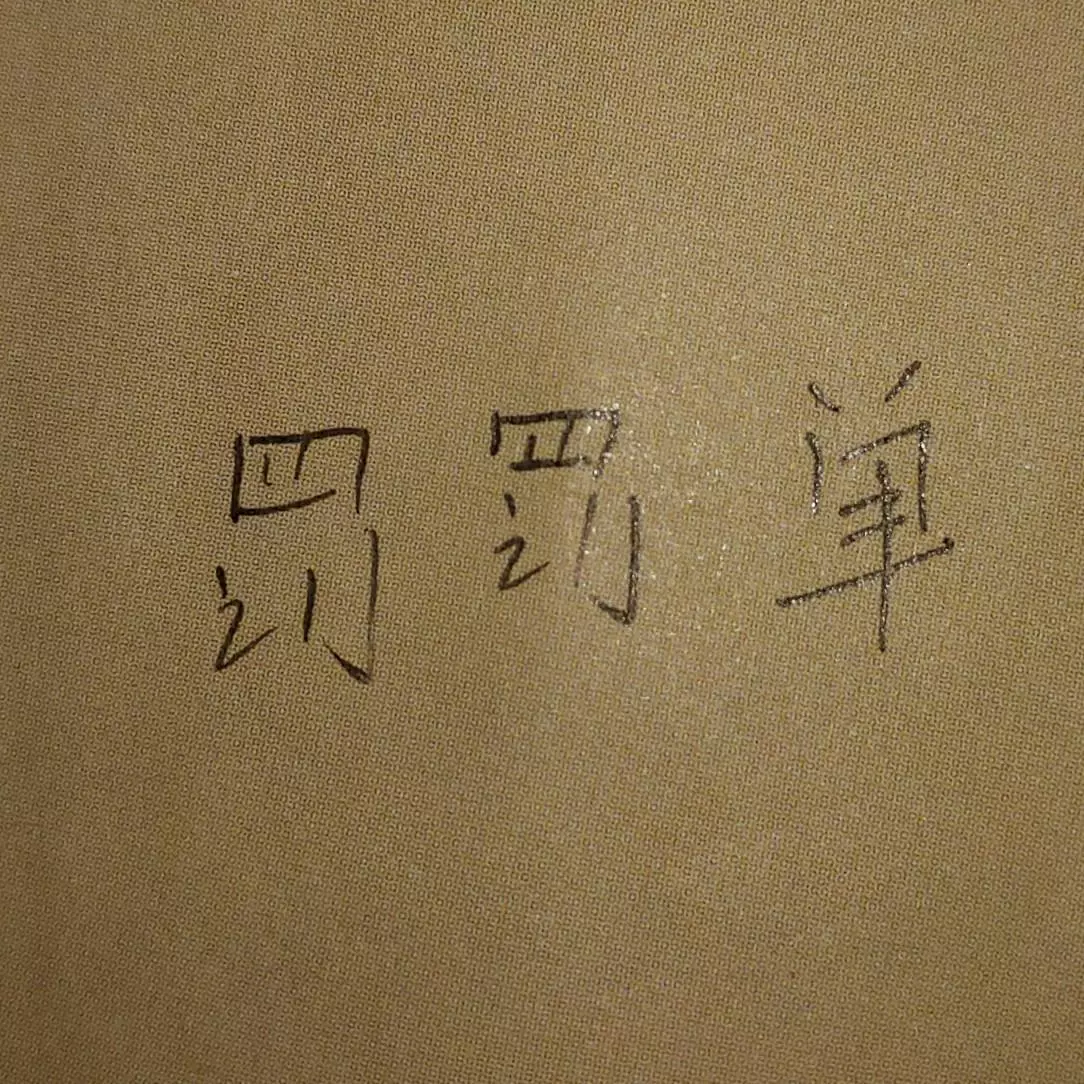 罚罚单